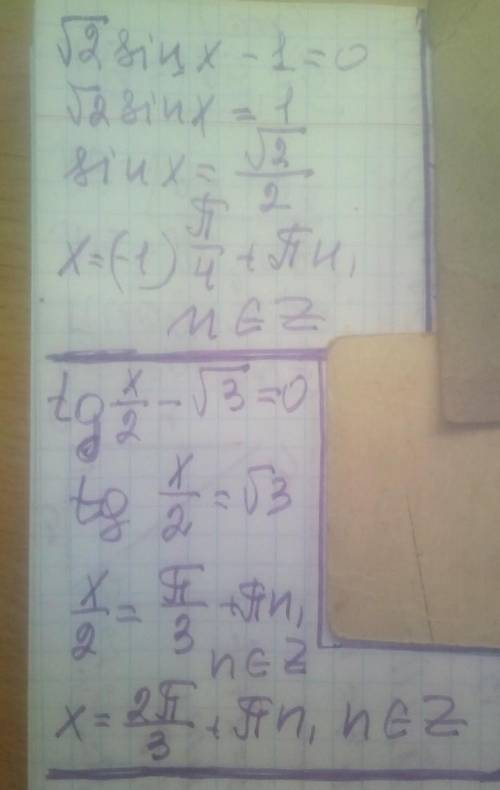 √2 sin x - 1 = 0
√2 sin x = 1
sin x = √2/2
x = (-1) π/4 + πn,
n ∈ Z
tg x/2 - √3 = 0
tg x/2 = √3
x/2 = π/3 + πn,
n ∈ Z
x = 2π/3 + πn, n ∈ Z